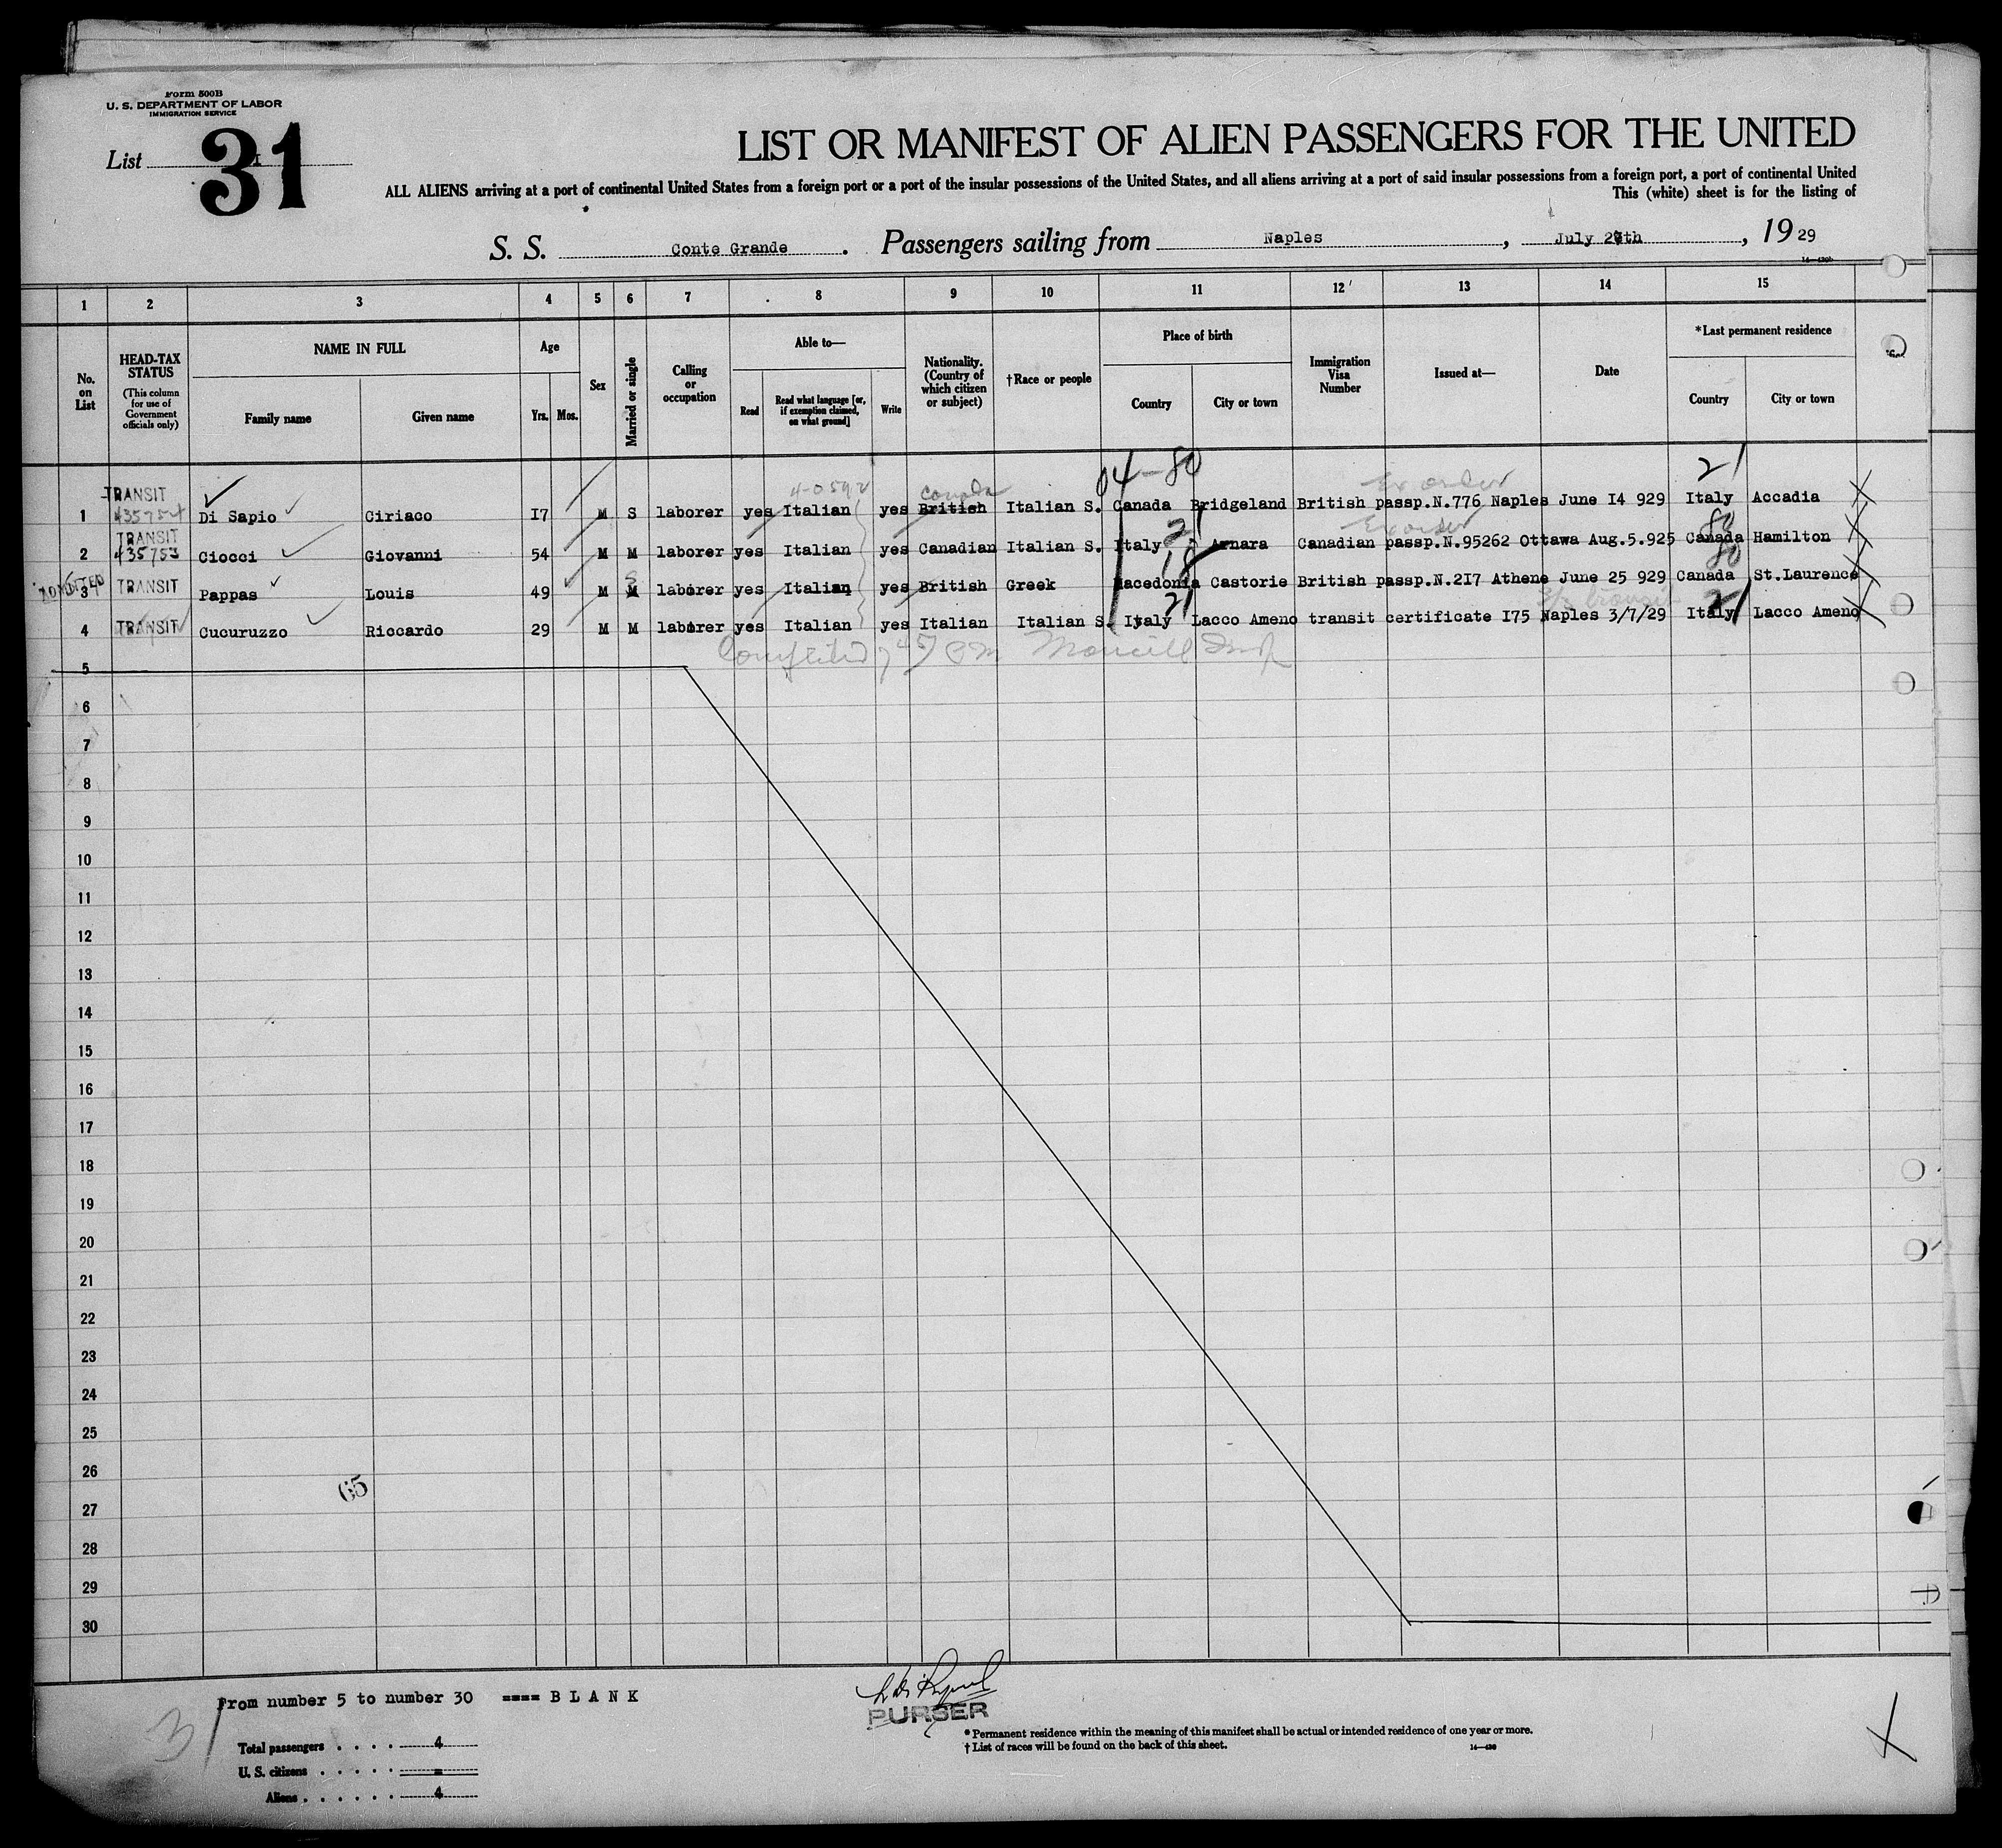 Form 500B
U. S. DEPARTMENT OF LABOR
IMMIGRATION SERVICE
List I
31
LIST OR MANIFEST OF ALIEN PASSENGERS FOR THE UNITED
ALL ALIENS arriving at a port of continental United States from a foreign port or a port of the insular possessions of the United States, and all aliens arriving at a port of said insular possessions from a foreign port, a port of continental United
This (white) sheet is for the listing of
S. S. Conte Grande. Passengers sailing from Naples, July th, 1929
1 2 3 4 5 6 7 8 9 10 11 12 13 14 15
No. on List
HEAD-TAX STATUS
(This column for use of Government officials only)
NAME IN FULL
Family name Given name
Age
Yrs. Mos.
Sex
Married or single
Calling or occupation
Able to—
Read
Read what language [or, if exemption claimed, on what ground]
Write
Nationality. (Country of which citizen or subject)
†Race or people
Place of birth
Country City or town
Immigration Visa Number
Issued at—
Date
*Last permanent residence
Country City or town
04-80 21
4-0592 Canada Ex order
1 TRANSIT 435754 Di Sapio Ciriaco I7 M S laborer yes Italian yes British Italian S. Canada Bridgeland British passp.N.776 Naples June I4 929 Italy Accadia
21 Ex order 80
2 TRANSIT 435753 Ciocci Giovanni 54 M M laborer yes Italian yes Canadian Italian S. Italy Arnara Canadian passp.N.95262 Ottawa Aug.5.925 Canada Hamilton
18 80
ADMITTED S
3 TRANSIT Pappas Louis 49 M M laborer yes Italian yes British Greek Macedonia Castorie British passp.N.2I7 Athene June 25 929 Canada St.Laurence
21 21
4 TRANSIT Cucuruzzo Riccardo 29 M M laborer yes Italian yes Italian Italian S. Italy Lacco Ameno transit certificate I75 Naples 3/7/29 Italy Lacco Ameno
5
6
7
8
9
10
11
12
13
14
15
16
17
18
19
20
21
22
23
24
25
26
65
27
28
29
30
From number 5 to number 30 ==== B L A N K
31
PURSER
Total passengers . . . . 4
U. S. citizens . . . . . =
Aliens . . . . . . 4
* Permanent residence within the meaning of this manifest shall be actual or intended residence of one year or more.
† List of races will be found on the back of this sheet.